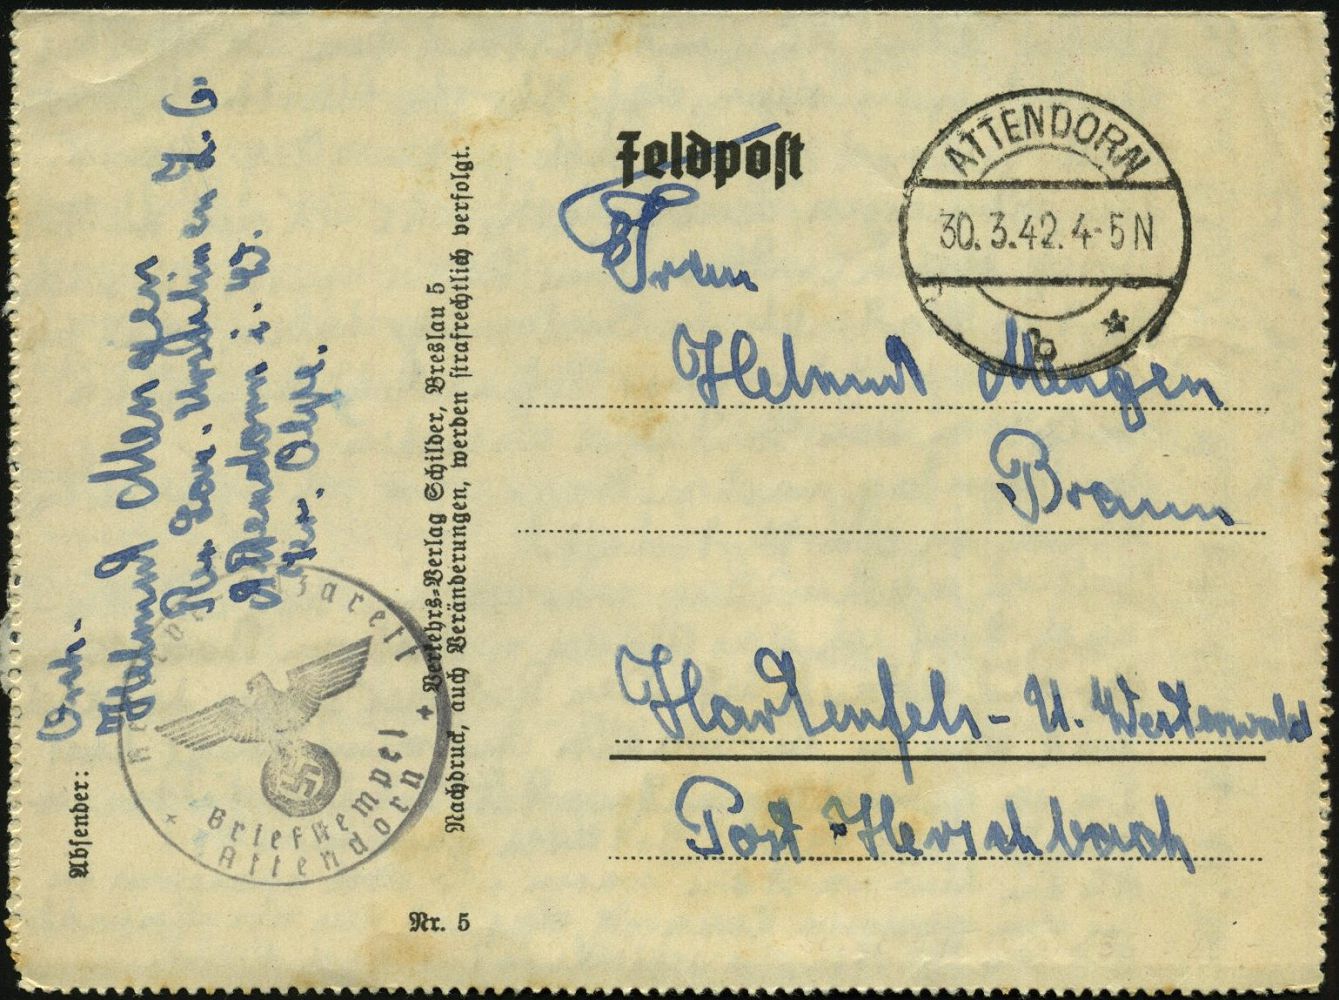 Feldpost
ATTENDORN
30.3.42.4-5N
b
Frau
Helmut Mengen
Braun
Hartenfels - U. Westerwald
Post Herschbach
Absender:
Helmut Mengen
Res. Laz. Ursulinen Z. 6
Attendorn i. W.
Kr. Olpe.
Briefstempel
Attendorn
Verkehrs-Verlag Schilder, Breslau 5
Nachdruck, auch Veränderungen, werden strafrechtlich verfolgt.
Nr. 5